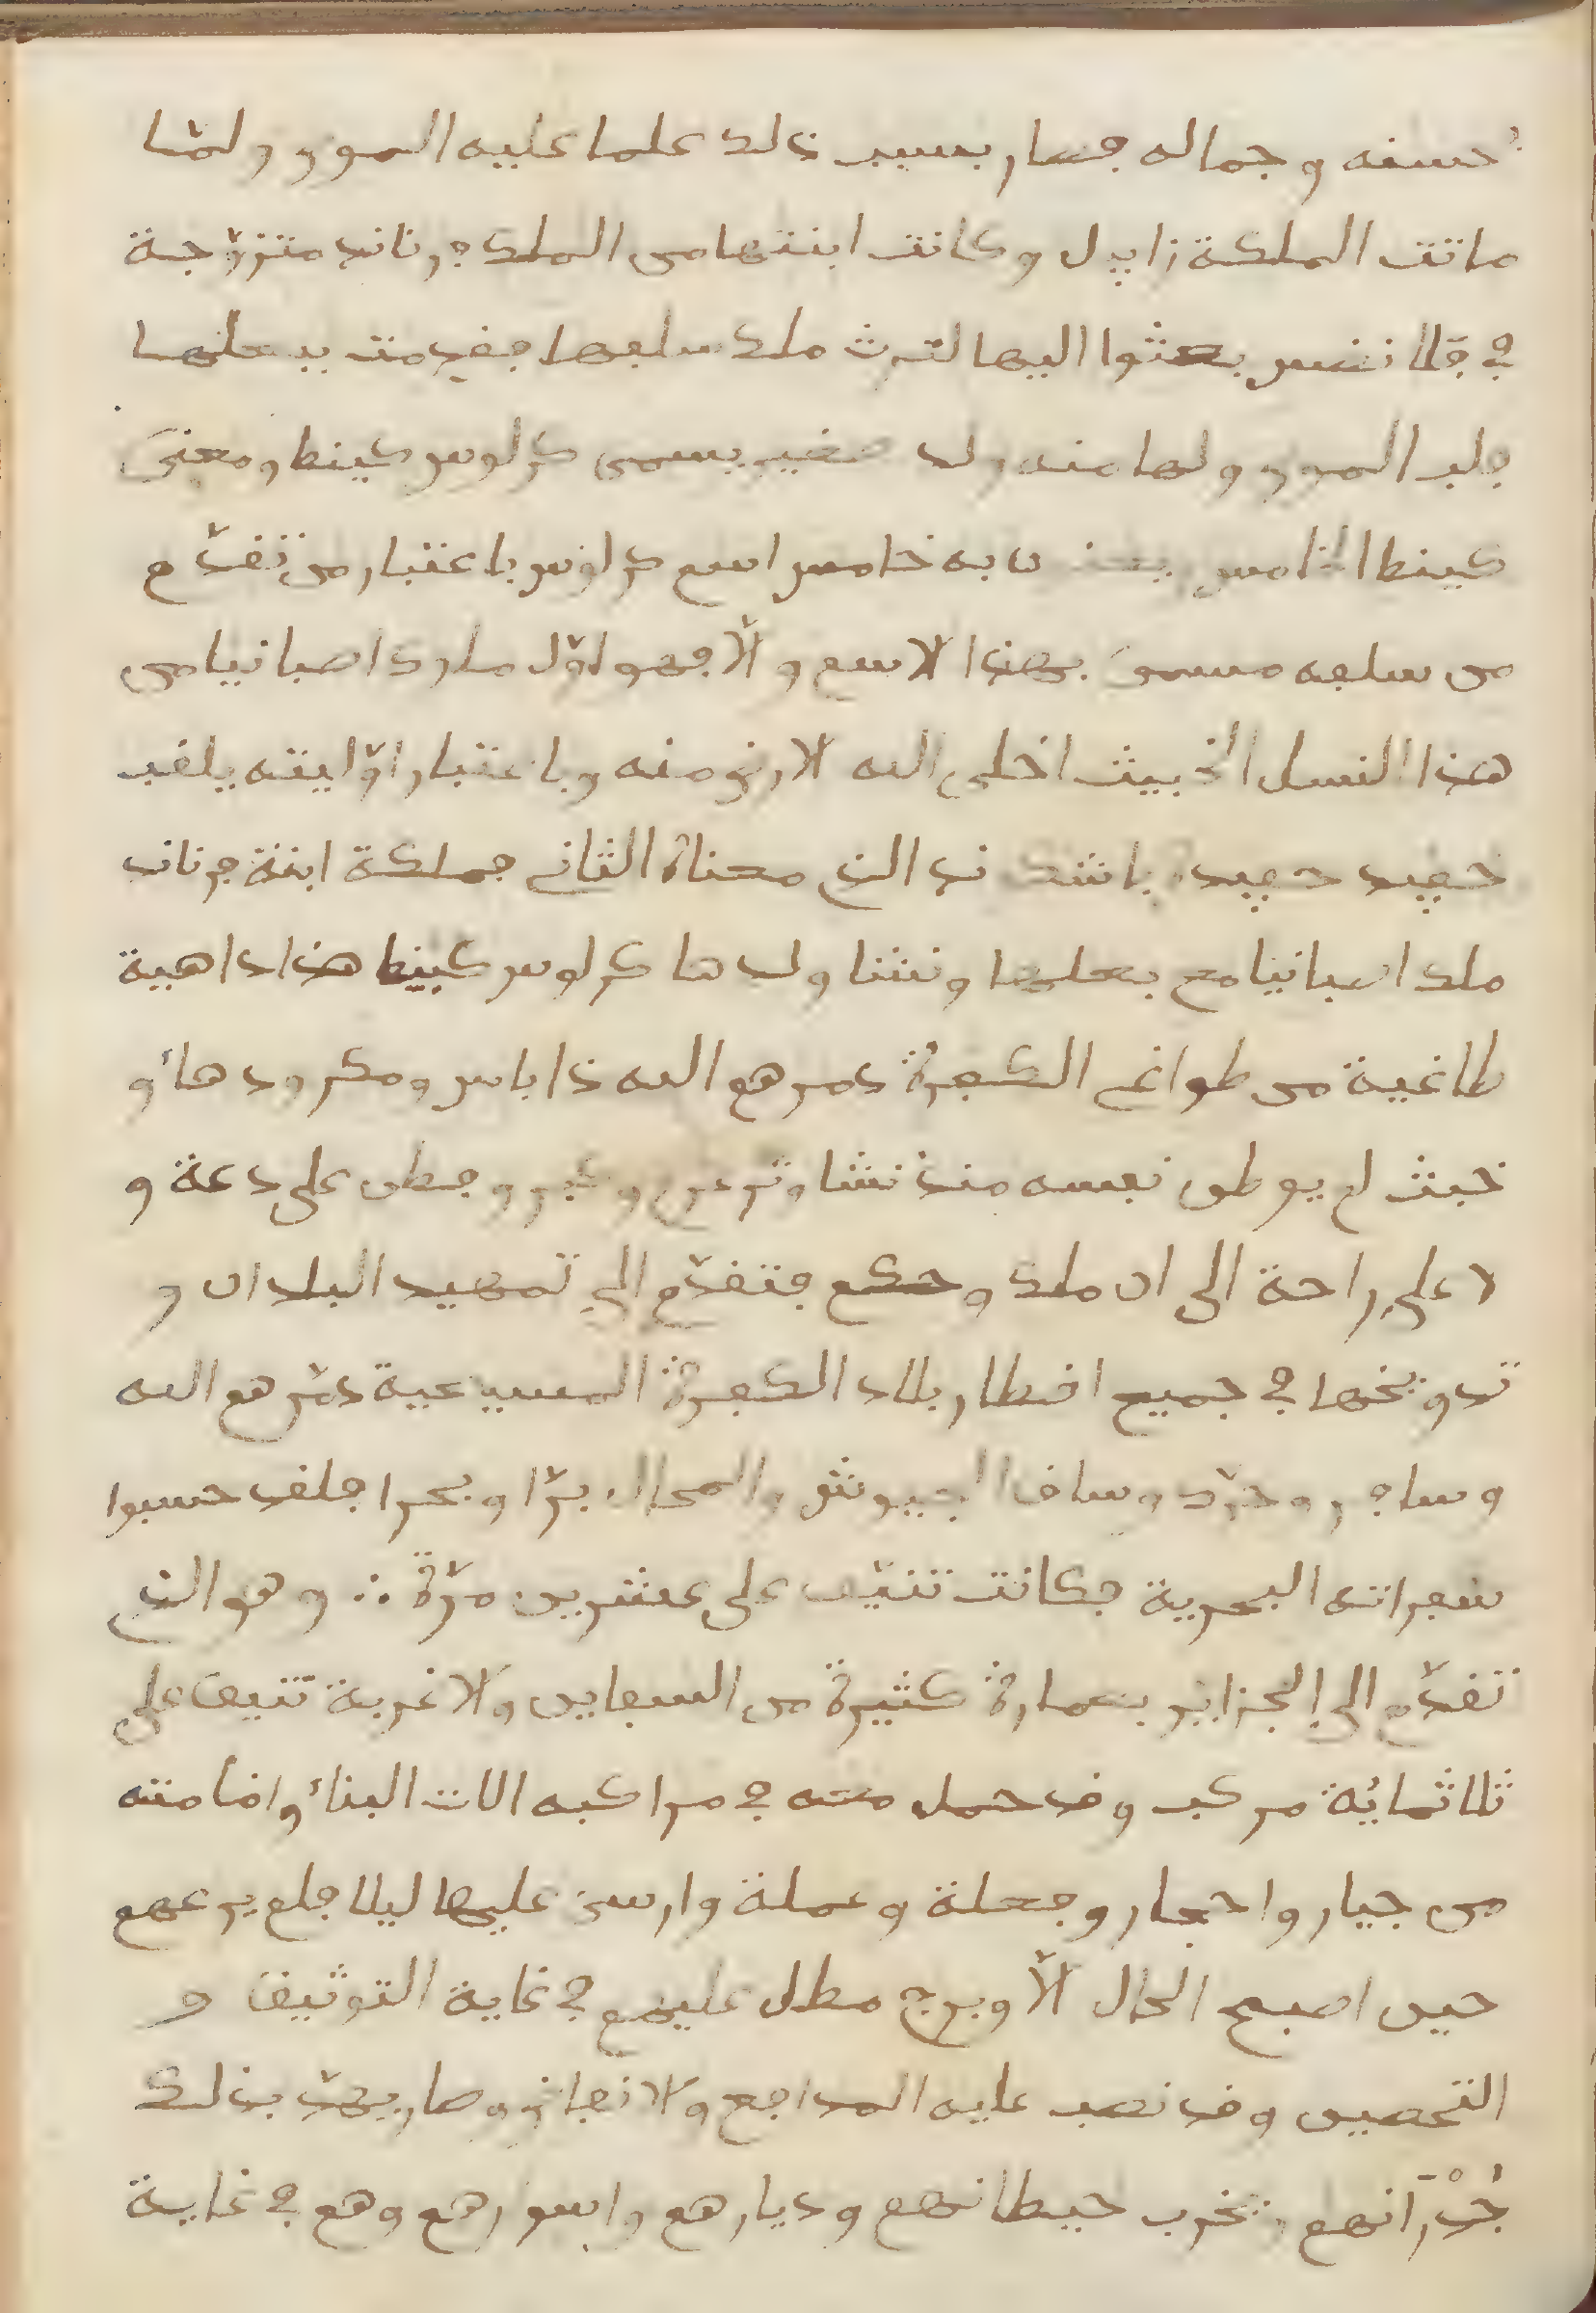 حسنه وجماله فصار بسبب ذلك علما عليه المون ولمّا
ماتت الملكة زابيل وكانت ابنتها من الملك فرناند متزوّجة
في فلانضس بعثوا اليها لترث ملك سلفها فقدمت ببعلها
فلب المون ولها منه ولد صغير يسمى كرلوس كينط ومعنىَ
كينط الخامس يعنون به خامس اسم كرلوس باعتبار من تقدّم
من سلفه مسمىَ بهذا الاسم والّا فهو اوّل ملوك اصبانيا من
هذا النسل الخبيث اخلى الله الارض منه وباعتبار اوّليته يلقب
حفيد حفيد الذي معناه الثاني فملكة ابنة فرناند
ملك اصبانيا مع بعلها ونشا ولدها كرلوس كينط هذا داهية
طاغية من طواغي الكفرة دمرهم الله ذا باس ومكر ودهاء و
خبث لم يوطن نفسه منذ نشا وترعرع وكبر وفطن على دعة و
لا على راحة الى ان ملك وحكم فتقدّم الى تمهيد البلدان و
تدويخها في جميع اقطار بلاد الكفرة المسيحية دمّرهم الله
وسافر وجرّد وساق الجيوش والمحال برّا وبحرا فلقد حسبوا
سفراته البحرية فكانت تنيّف على عشرين مرّة ∴ وهو الذي
تقدّم الى الجزاير بعمارة كثيرة من السفاين والاغربة تنيف على
ثلاثمائة مركب وقد حمل معه في مراكبه الات البناء واقامته
من جيار واحجار وفعلة وعملة وارسى عليها ليلا فلم يرعهم
حين اصبح الحال الّا وبرج مطل عليهم في غاية التوثيق و
التحصين وقد نصب عليه المدافع والانفاض وصار يهدّ بذلك
جُدْرَانهم ويخرب حيطانهم وديارهم واسوارهم وهم في غاية